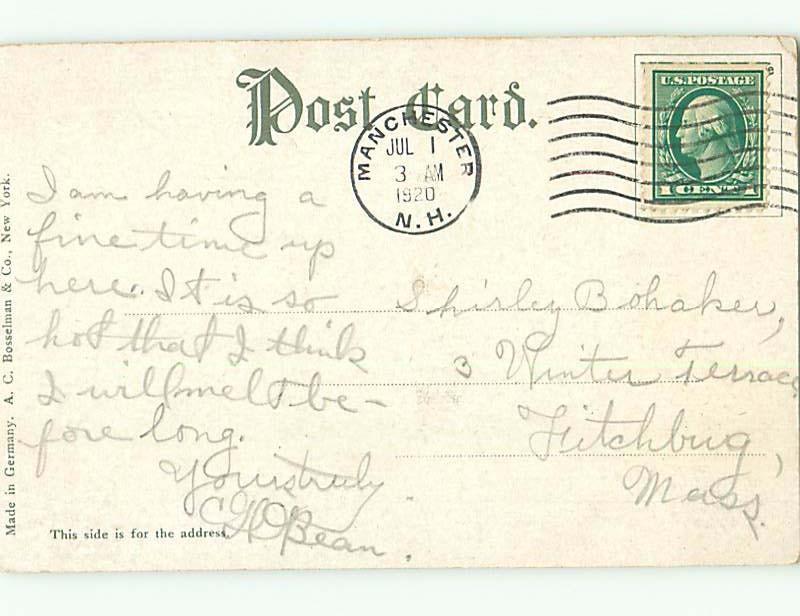 Post Card.
U.S.POSTAGE
1 CENT 1
MANCHESTER
JUL 1
3 AM
1920
N.H.
I am having a
fine time up
here. It is so
hot that I think
I will melt be-
fore long.
Yours truly
Bean.
Shirley Bohaker,
3 Winter Terrace
Fitchburg,
Mass.
This side is for the address.
Made in Germany. A. C. Bosselman & Co., New York.